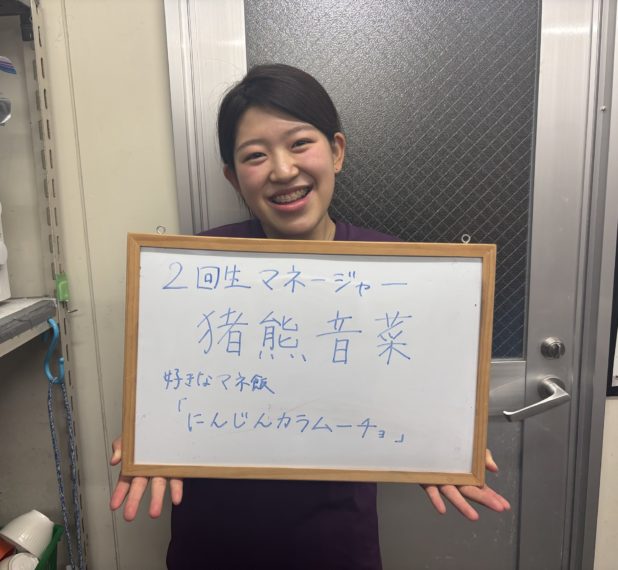 2回生マネージャー
猪熊音菜
好きなマネ飯
「にんじんカラムーチョ」